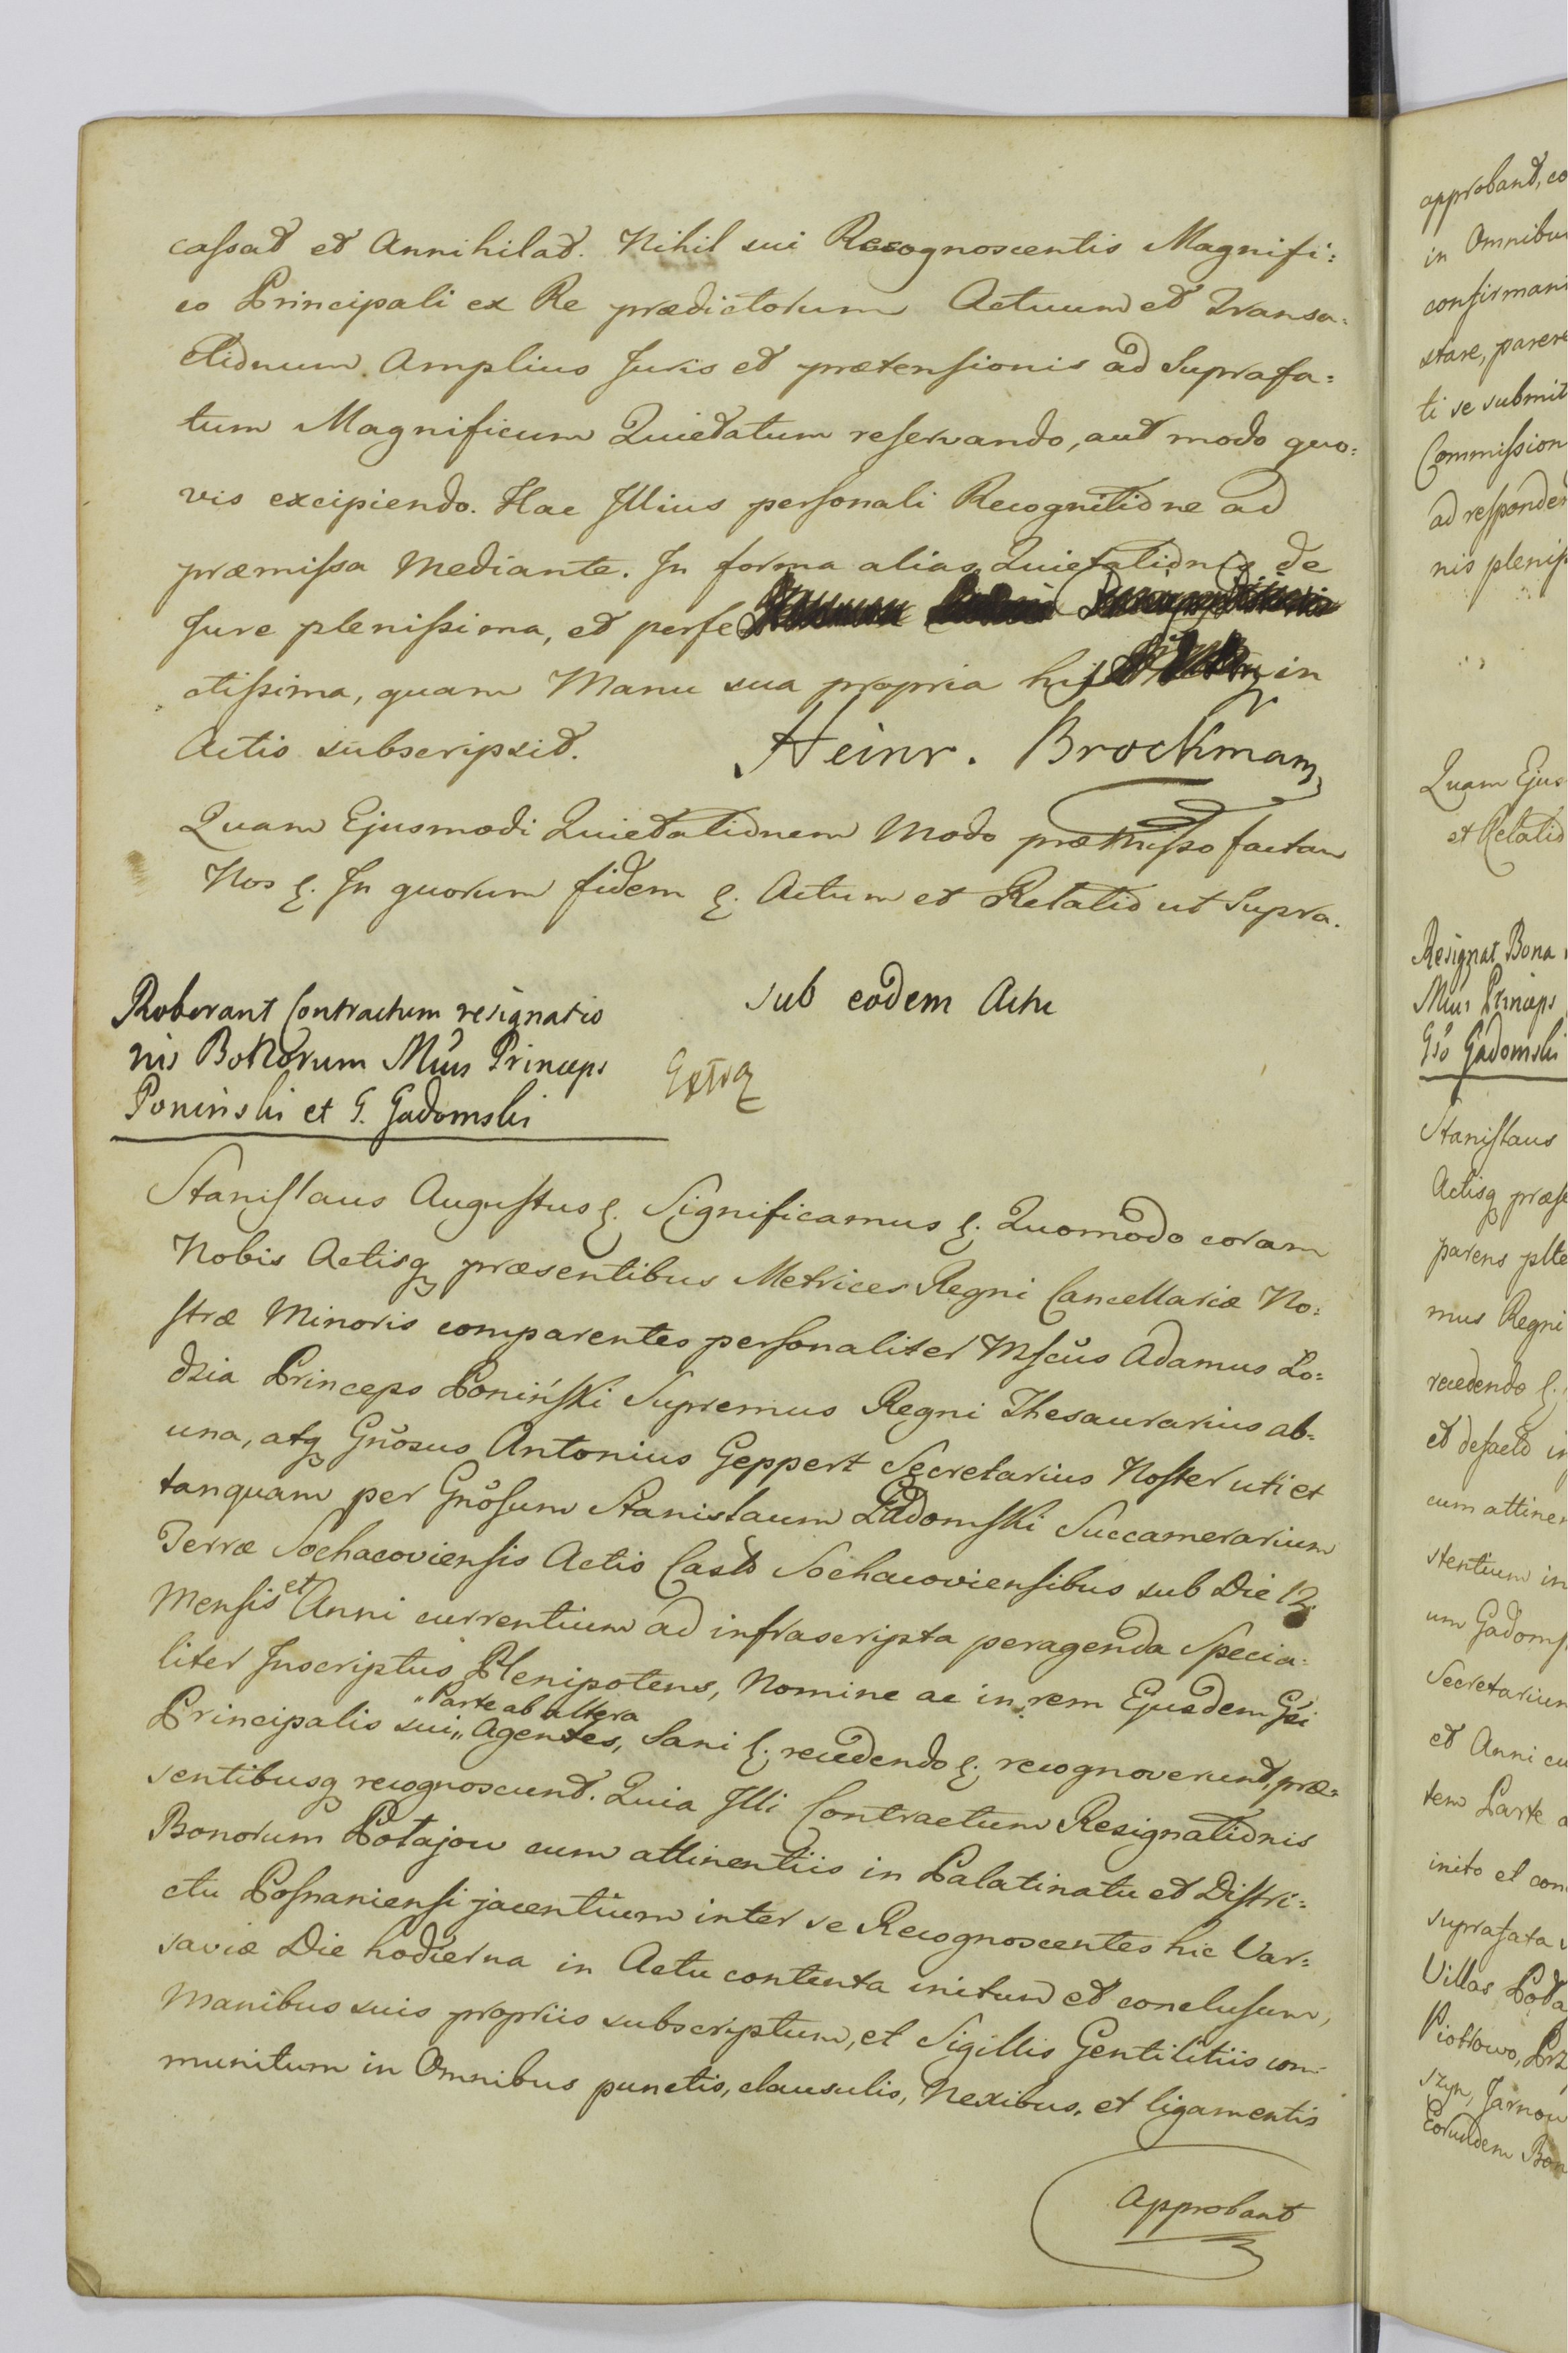 cassat et Annihilat. Nihil sui Recognoscentis Magnifi:
co Principali ex Re prædictorum Actuum et Transa:
ctionum Amplius Juris et prætensionis ad Suprafa:
tum Magnificum Quietatum reservando, aut modo quo:
vis excipiendo. Hac Illius personali Recognitione ad
præmissa Mediante. In forma alias Quietationis de
Jure plenissima, et perfe
ctissima, quam Manu sua propria hic in
Actis subscripsit.
Heinr. Brockmann
Quam Ejusmodi Quietationem Modo præmisso factam
Nos &. In quorum fidem &. Actum et Relatio ut Supra.
Sub eodem Actu
Roborant Contractum resignatio
nis Bonorum Mcũs Princeps
Poninski et G. Gadomski
Extra
Stanislaus Augustus &. Significamus &. Quomodo coram
Nobis Actisq præsentibus Metrices Regni Cancellariæ No:
stræ Minoris comparentes personaliter Mfcũs Adamus Lo:
dzia Princeps Poniński Supremus Regni Thesaurarius ab:
una, atq Gñosus Antonius Geppert Secretarius Noster uti et
tanquam per Gñosum Stanislaum Gadomski Succamerarium
Terræ Sochacoviensis Actis Castr Sochacoviensibus sub Die 12.
Mensis et Anni currentium ad infrascripta peragenda Specia:
liter Inscriptus Plenipotens, Nomine ac in rem Ejusdem Gsi
Principalis sui "Parte ab altera" Agentes, Sani &. recedendo &. recognoverunt, præ:
sentibusq recognoscunt. Quia Illi Contractum Resignationis
Bonorum Potajow cum attinentiis in Palatinatu et Distri:
ctu Posnaniensi jacentium inter se Recognoscentes hic Var:
saviæ Die hodierna in Actu contenta initum et conclusum,
Manibus suis propriis subscriptum, et Sigillis Gentilitiis com
munitum in Omnibus punctis, clausulis, Nexibus, et ligamentis
Approbant
approbant, co
in Omnibu
confirman
stare, parere
ti se submit
Commission
ad responden
nis pleniss
Quam Ejus
et Relatio
Resignat Bona
Mcus Princeps
Gso Gadomski
Stanislaus
Actisq præse
parens plte
mus Regni
recedendo &.
et defacto in
cum attinen
stentium in
um Gadoms
Secretarium
et Anni cu
tem Parte a
inito et con
suprafata
Villas Pota
Piotrowo, Prz
szyn, Jarnow
Eorundem Bon